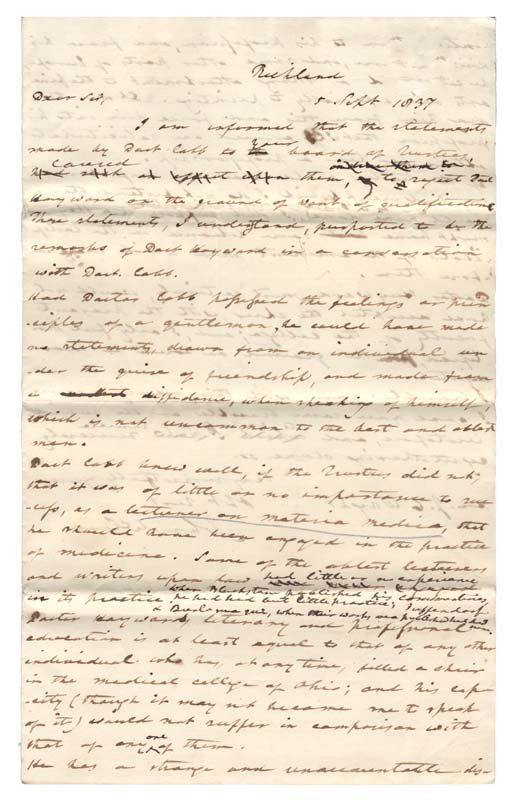 Richland
Dear Sir, 5 Sept 1837
I am informed that the statements
made by Doct Cobb to your board of Trustees
caused them, to reject Doct
Hayward on the ground of want of qualification.
These statements, I understand, purported to be the
remarks of Doct Hayward in a conversation
with Doct. Cobb.
Had Doctor Cobb possessed the feelings or prin
-ciples of a gentleman, he could have made
no statements, drawn from an individual un
der the guise of friendship, and made from
a diffidence, when speaking of himself,
which is not uncommon to the best and ablest
men.
Doct Cobb knew well, if the Trustees did not,
that it was of little or no importance to suc
-cess, as a lecturer on materia medica, that
he should have been engaged in the practice
of medicine. Some of the ablest lecturers
and writers upon law had little or no experience
in its practice when Blackstone published his commentaries,
he had had but little practice; Puffendorf
& Burlamaqui, when their works were published had none.
Doctor Hayward, literary and professional
education is at least equal to that of any other
individual who has, at any time, filled a chair
in the medical college of Ohio; and his cap
-city (though it may not become me to speak
of it) would not suffer in comparison with
that of any one of them.
He has a strange and unaccountable dis-